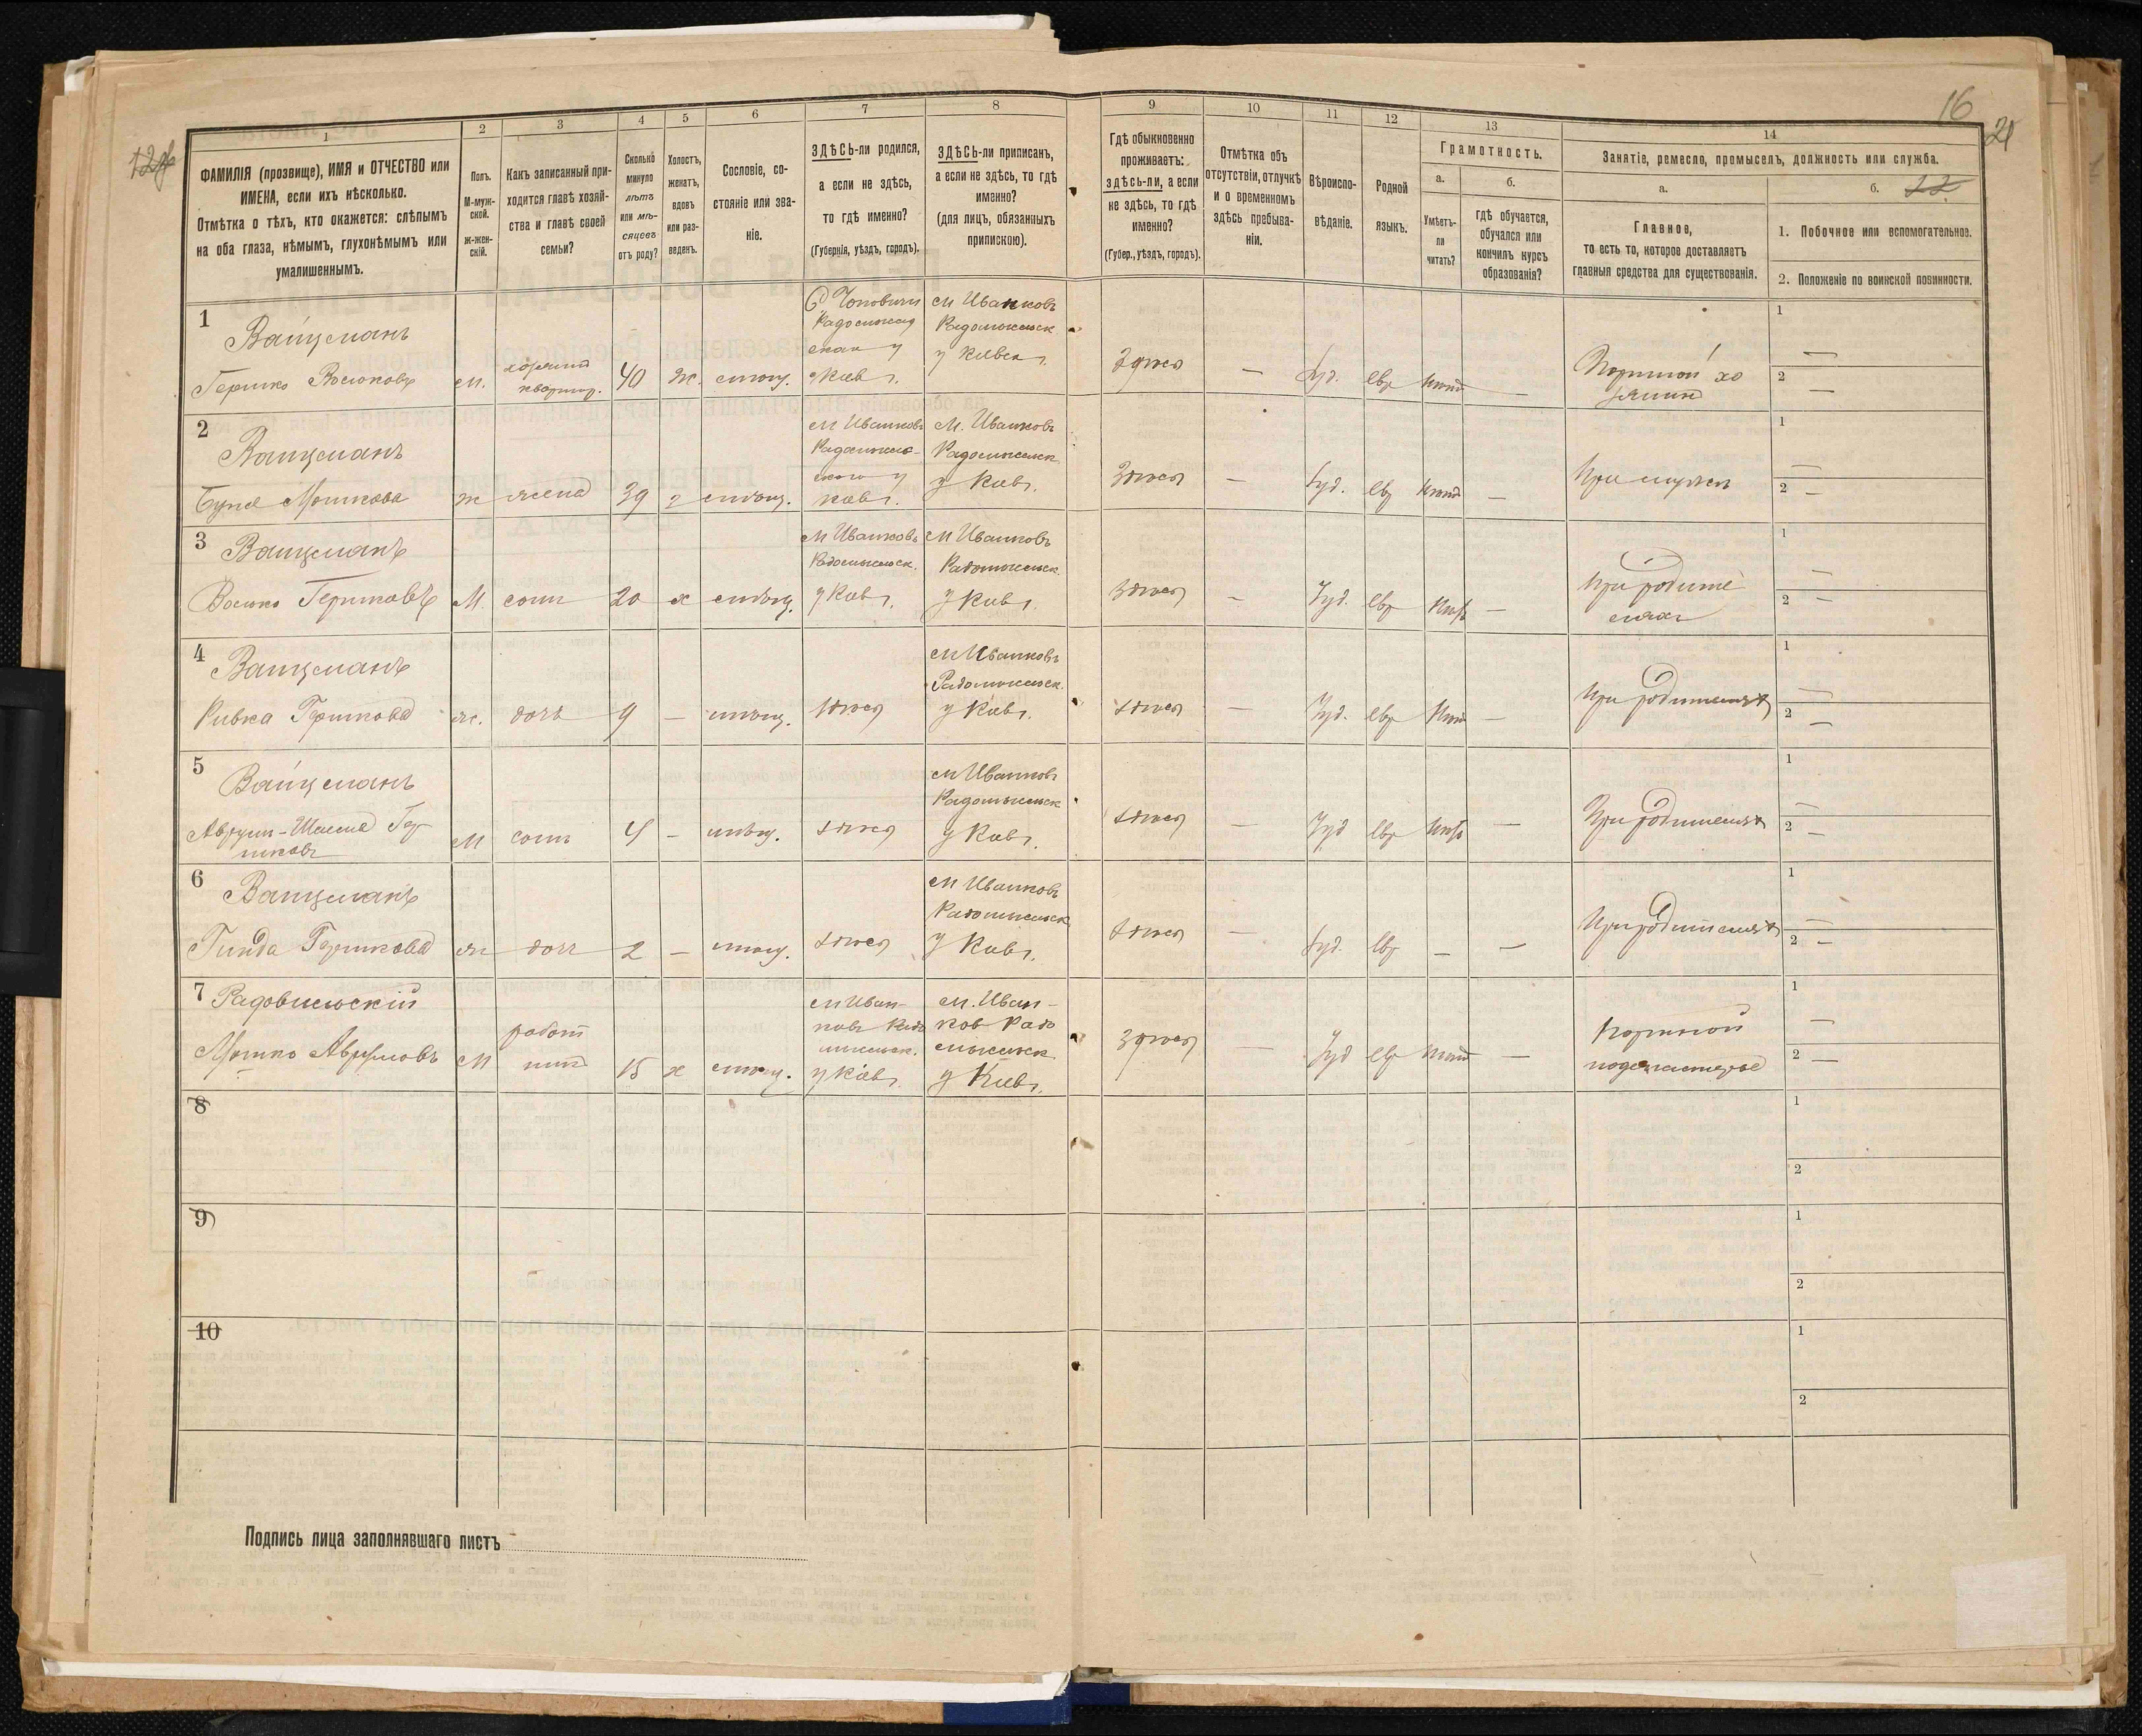 16
21
1 2 3 4 5 6 7 8 9 10 11 12 13 14
ФАМИЛІЯ (прозвище), ИМЯ и ОТЧЕСТВО или
ИМЕНА, если ихъ нѣсколько.
Отмѣтка о тѣхъ, кто окажется: слѣпымъ
на оба глаза, нѣмымъ, глухонѣмымъ или
умалишеннымъ.
Полъ.
М-муж-
ской.
ж-жен-
скій.
Какъ записанный при-
ходится главѣ хозяй-
ства и главѣ своей
семьи?
Сколько
минуло
лѣтъ
или мѣ-
сяцевъ
отъ роду?
Холостъ,
женатъ,
вдовъ
или раз-
веденъ.
Сословіе, со-
стояніе или зва-
ніе.
ЗДѢСЬ-ли родился,
а если не здѣсь,
то гдѣ именно?
(Губернія, уѣздъ, городъ).
ЗДѢСЬ-ли приписанъ,
а если не здѣсь, то гдѣ
именно?
(для лицъ, обязанныхъ
припискою).
Гдѣ обыкновенно
проживаетъ:
здѣсь-ли, а если
не здѣсь, то гдѣ
именно?
(Губер., уѣздъ, городъ).
Отмѣтка объ
отсутствіи, отлучкѣ
и о временномъ
здѣсь пребыва-
ніи.
Вѣроиспо-
вѣданіе.
Родной
языкъ.
Грамотность.
а.
Умѣетъ-
ли
читать?
б.
гдѣ обучается,
обучался или
кончилъ курсъ
образованія?
Занятіе, ремесло, промыселъ, должность или служба.
а.
Главное,
то есть то, которое доставляетъ
главныя средства для существованія.
б. 22
1. Побочное или вспомогательное.
2. Положеніе по воинской повинности.
1
Вайцманъ
Гершко Воськовъ
М.
хозяинъ
квартир.
40
Чоповичи
Кіев г.
М Иванковъ
Радомысльск
у Кіевск г.
Здѣсь
—
Іуд. евр
—
Портной хо
зяинъ
1 —
2 —
2
Вайцманъ
Мошкова
ж жена 39
М Иванковъ
у Кіев г.
М. Иванковъ
Радомысльск
у Кіев г.
Здѣсь
—
Іуд. евр
—
При мужѣ
1 —
2 —
3
Вайцманъ
Восько Гершковъ
М сынъ 20 х
М Иванковъ
Радомысльск.
у Кіев г.
М Иванковъ
Радомысльск.
у Кіев г.
Здѣсь
—
Іуд. евр
—
При родите
ляхъ
1 —
2 —
4
Вайцманъ
Ривка Гершкова
ж. дочь 9 —
здѣсь
М Иванковъ
Радомысльск.
у Кіев г.
здѣсь
—
Іуд. евр
—
При родителяхъ
1 —
2 —
5
Вайцманъ
Аврум-Шмед Гер
шковъ
М сынъ 4 —
здѣсь
М Иванковъ
Радомысльск
у Кіев г.
здѣсь
—
Іуд евр
—
При родителяхъ
1 —
2 —
6
Вайцманъ
Гинда Гершкова
ж дочь 2 —
здѣсь
М Иванковъ
Радомысльск
у Кіев г.
здѣсь
—
Іуд. евр — —
При родителяхъ
1 —
2 —
7
Радовильскій
Мошко Аврумовъ
М
работ
никъ
15 х
М Иван-
ковъ Радо
мысльск.
у Кіев г.
М. Иван-
ков Радо
мысльск
у Кіев г.
Здѣсь
—
Іуд евр
—
Портной
подмастерье
1 —
2 —
8
1
2
9
1
2
10
1
2
Подпись лица заполнявшаго листъ